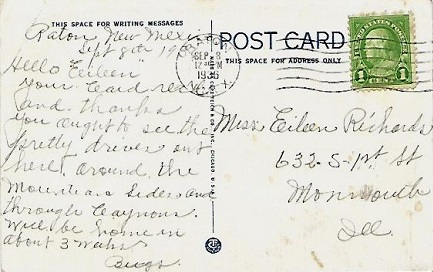 THIS SPACE FOR WRITING MESSAGES
Raton, New Mexico
Sept 8th
Hello Eileen
Your Card rec
and thanks
you ought to see the
pretty drives out
here, around the
Mountians Sides and
through Caynons.
Will be home in
about 3 weeks
Bugs
SEP 8
1936
POST CARD
THIS SPACE FOR ADDRESS ONLY
1 1
Miss Eileen Richards
632-S-1st St
Monmouth
Ill.